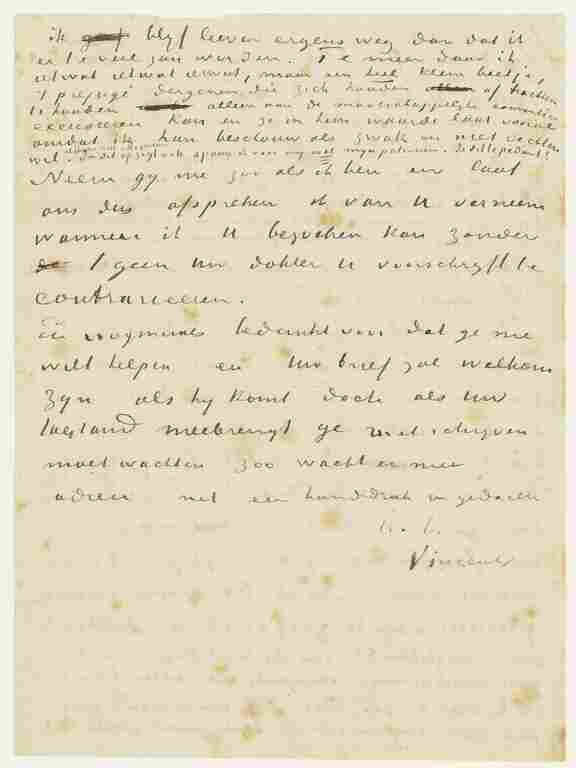 ik blyf liever ergens weg dan dat ik
er te veel zou worden. Te meer daar ik
ietwat ietwat ietwat, maar een heel klein beetje,
't préjugé dergenen die zich houden of trachten
te houden alleen aan de maatschappelijke
excuseeren kan en ze in hun waarde laat vooral
omdat ik hen beschouw als zwak en niet vechten
wil.
Neem gy me zoo als ik ben en laat
ons dus afspreken ik van U verneem
wanneer ik U bezoeken kan zonder
't geen Uw dokter U voorschryft te
contrarieeren.
nogmaals bedankt voor dat ge me
wilt helpen en Uw brief zal welkom
zyn als hy komt doch als Uw
toestand meebrengt ge met schryven
moet wachten zoo wacht er mee
adieu met een handdruk in gedachten
t. t.
Vincent